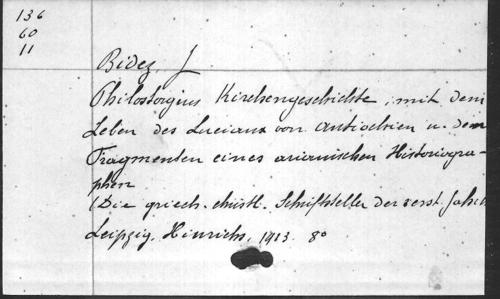 136
60
11
Bidez, J
Philostorgius Kirchengeschichte, mit dem
Leben des Lucians von Antiochien u. den
Fragmenten eines arianischen Historiogra-
phen
(Die griech. christl. Schriftsteller der erst. Jahr
Leipzig, Hinrichs, 1913. 8º